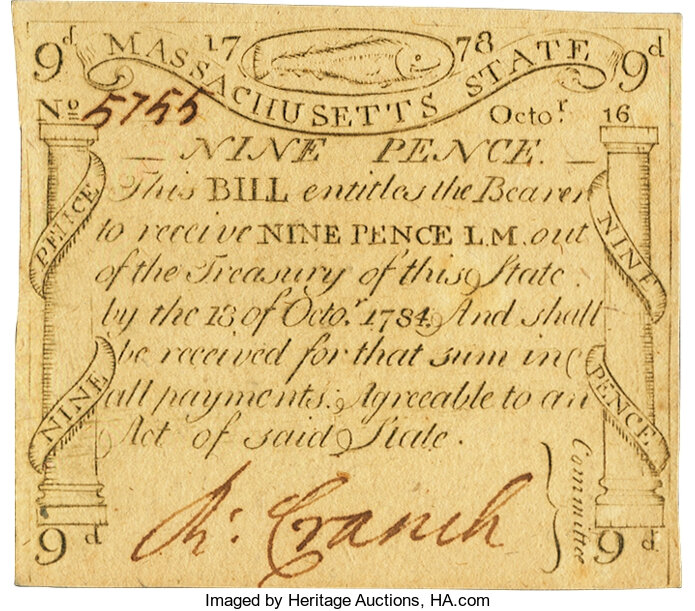 9d 17 78 9d
MASSACHUSETTS STATE
No 5755 Octor. 16
NINE PENCE.
This BILL entitles the Bearer
to receive NINE PENCE L.M. out
of the Treasury of this State.
by the 18 of Octor. 1784. And shall
be received for that sum in
all payments. Agreeable to an
Act of said State.
PENCE
NINE
NINE
PENCE
Committee
Ri: Cranch
9d 9d
Imaged by Heritage Auctions, HA.com